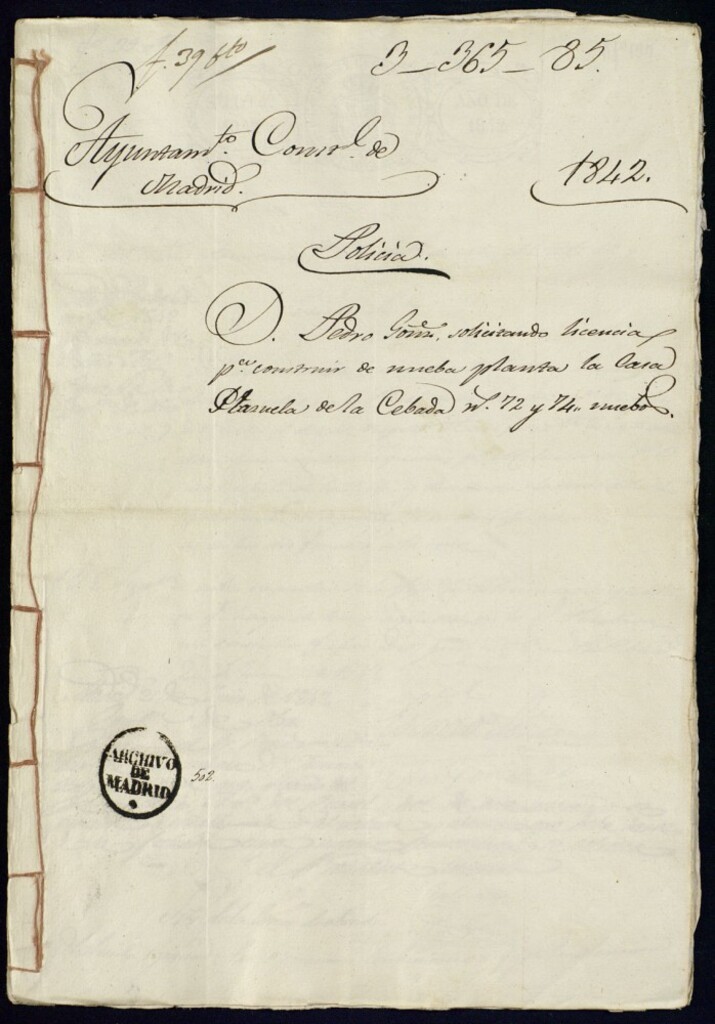 f. 39 bto
3-365-85.
Ayuntamto. Constl. de
Madrid.
1842.
Policia.
D. Pedro Gonz., solicitando licencia
pa. construir de nueba planta la Casa
Plazuela de la Cebada nos. 72 y 74 nuebos.
ARCHIVO
DE
MADRID
502